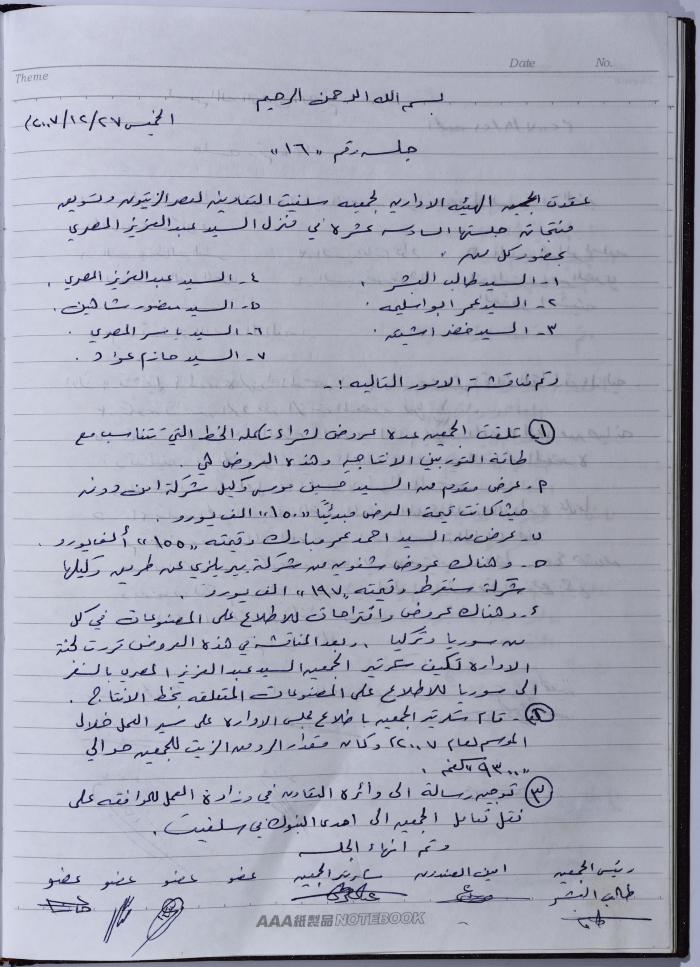 Theme
Date No.
بسم الله الرحمن الرحيم
الخميس ٢٠٠٧/١٢/٢٧
جلسه رقم "١٦"
عقدت الهيئه الاداريه لجمعيه سلفيت التعاونيه لعصر الزيتون وتسويق
منتجاته جلستها السادسه عشرة في منزل السيد عبد العزيز المصري
بحضور كل من :
١- السيد طالب النشر . ٤- السيد عبد العزيز المصري .
٢- السيد عمر ابو اسليمه . ٥- السيد منصور شاهين .
٣- السيد خضر اشتيه . ٦- السيد ياسر المصري .
٧- السيد حازم عواد .
وتم مناقشة الامور التاليه :-
١ تلقت الجمعيه عدة عروض لشراء تكمله الخط التي تتناسب مع
طاقة التوربين الانتاجيه وهذه العروض هي .
٢- عرض مقدم من السيد حسين موسى وكيل شركة
حيث كانت قيمة العرض مبدئياً "١٥٠" الف يورو .
ب عرض من السيد احمد عمر مبارك وقيمته "١٥٥" ألف يورو .
ح- وهناك عروض من شركة بيريلزي عن طريق وكيلها
شركة سنقرط وقيمته "١٩٧" الف يورو .
ء- وهناك عروض واقتراحات للاطلاع على المصنوعات في كل
من سوريا وتركيا . وبعد المناقشه في هذه العروض قررت لجنة
الاداره تكليف سكرتير الجمعيه السيد عبد العزيز المصري بالسفر
الى سوريا للاطلاع على المصنوعات المتعلقه بخط الانتاج .
٢- قام سكرتير الجمعيه باطلاع مجلس الاداره على سير العمل خلال
الموسم لعام ٢٠٠٧ وكان مقدار الرد من الزيت للجمعيه حوالي
"٩٣٠٠" كغم .
٣ توجيه رسالة الى دائرة التعاون في وزارة العمل للموافقه على
نقل تعامل الجمعيه الى احدى البنوك في سلفيت .
وتم انهاء الجلسه
رئيس الجمعيه امين الصندوق سكرتير الجمعيه عضو عضو عضو عضو
طالب النشر
AAA紙製品 NOTEBOOK